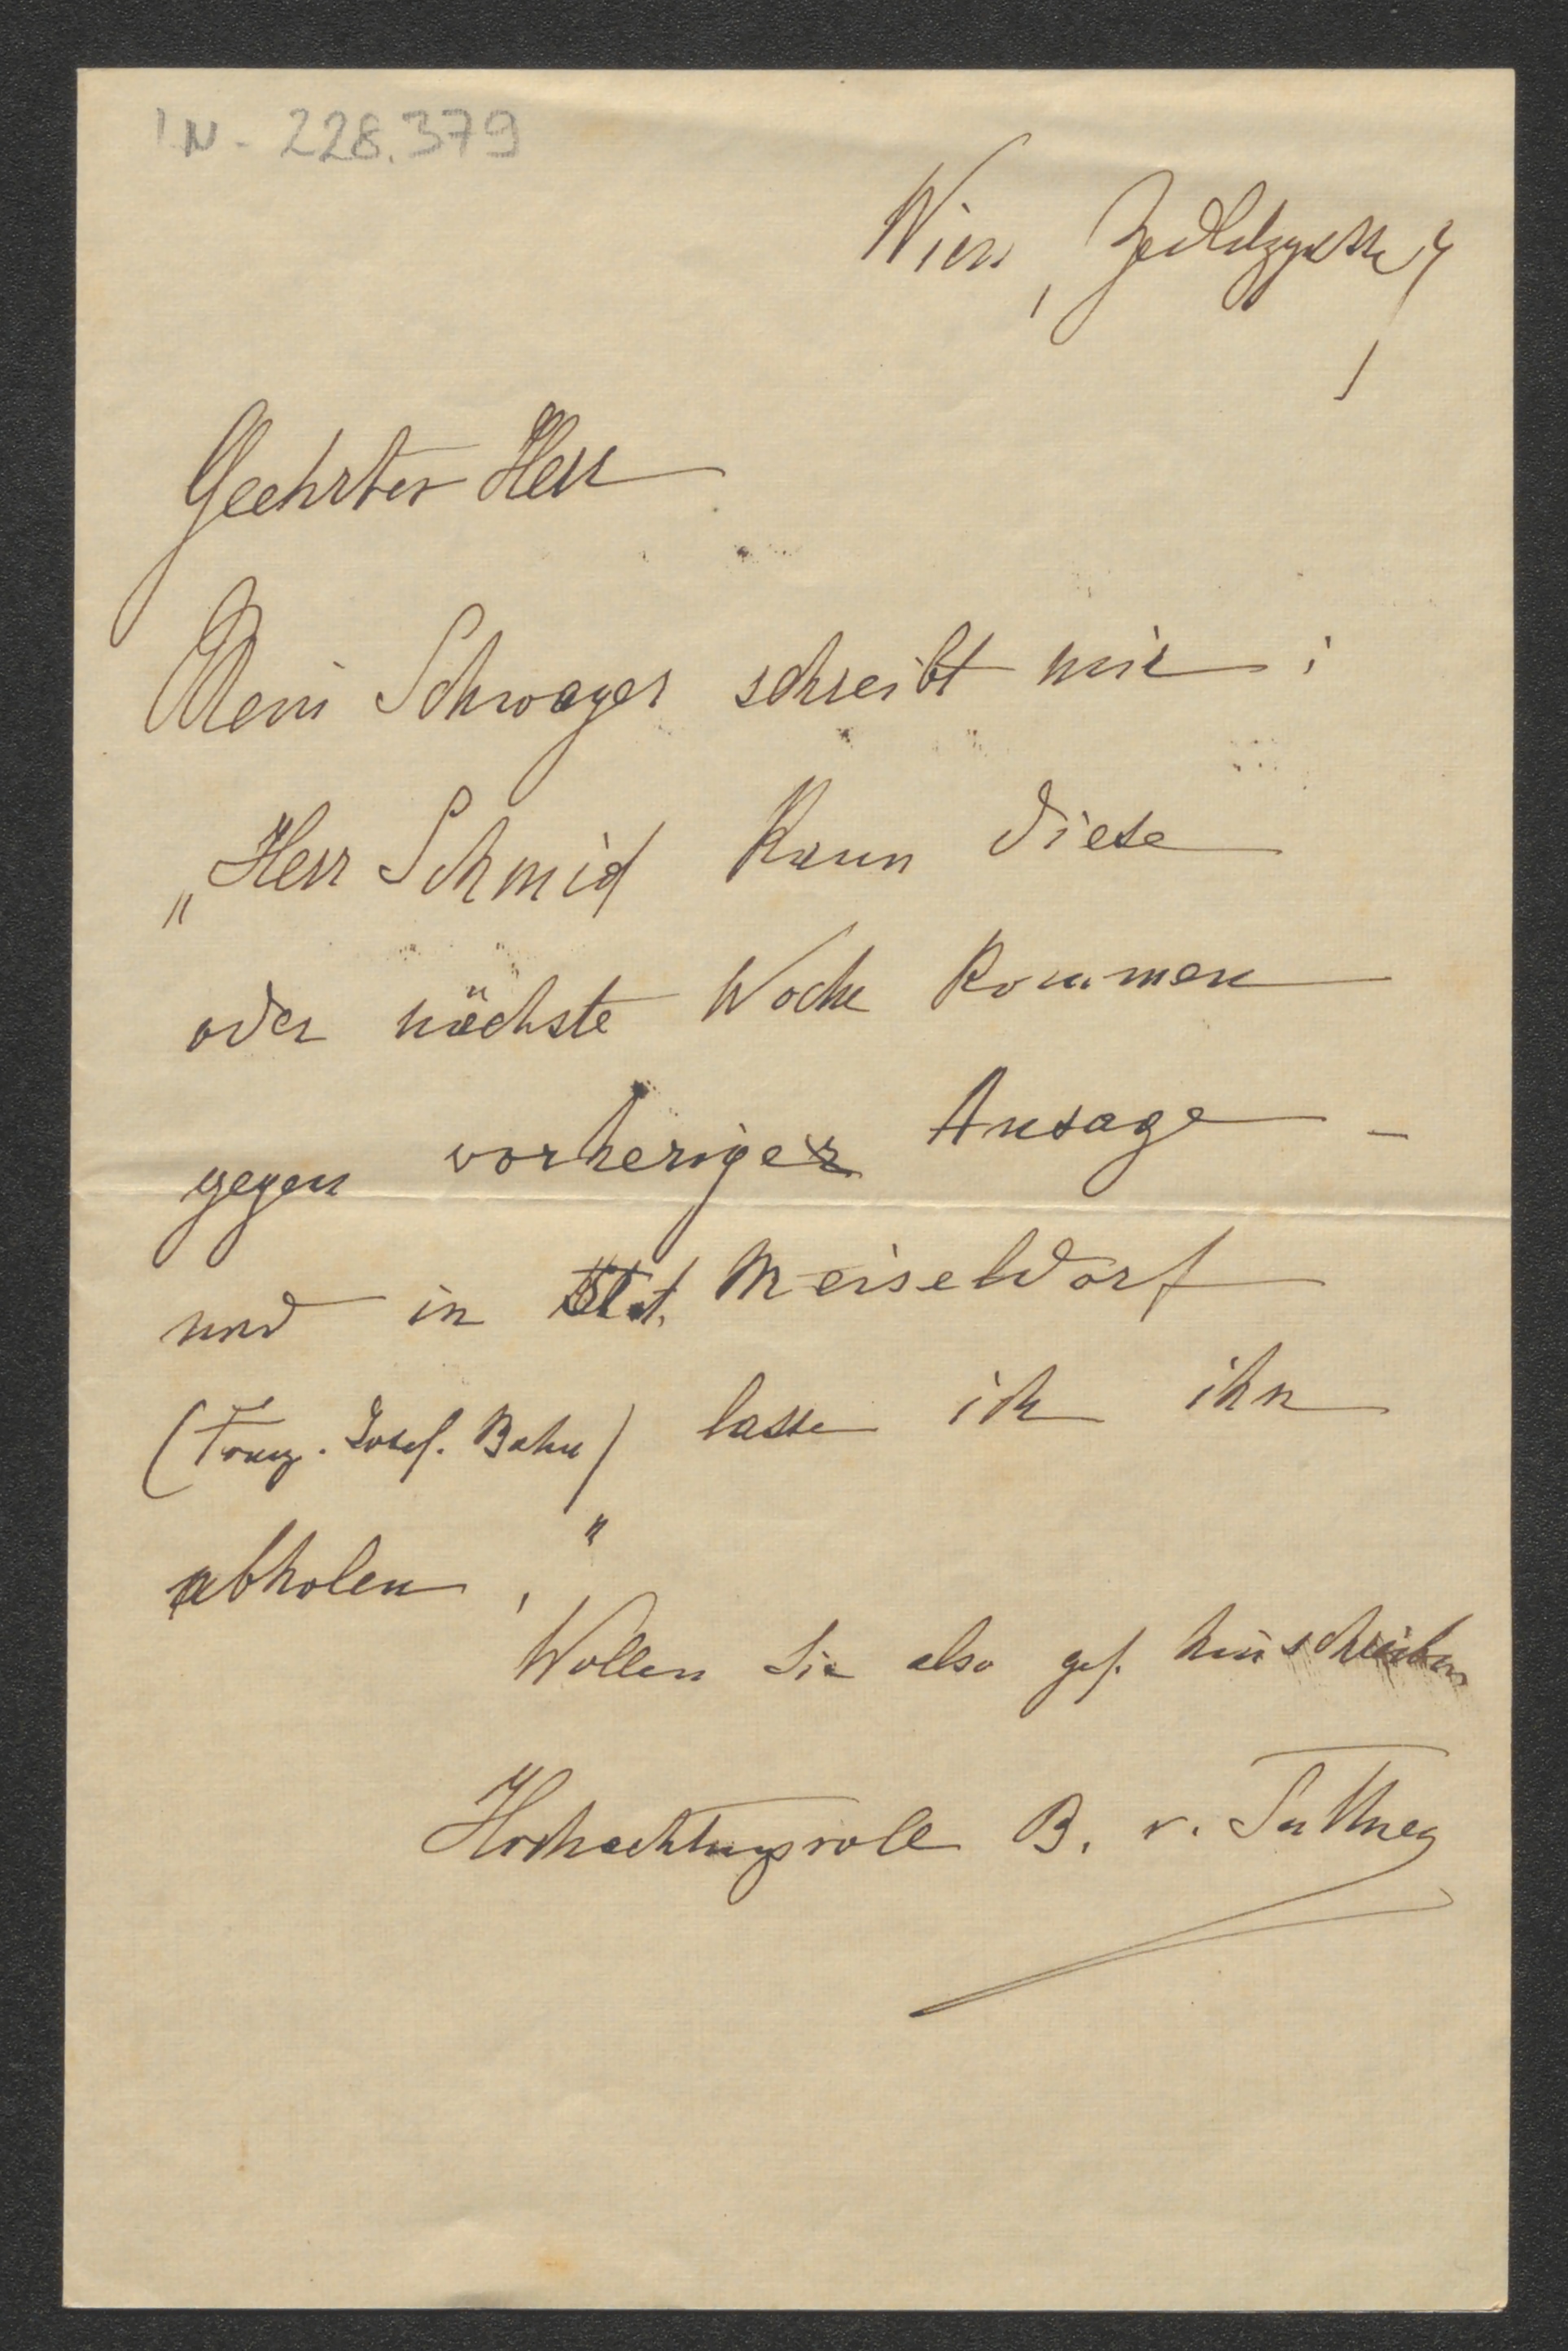 I.N. 228.379
Wien, Zedlitzgasse 7
Geehrter Herr
Mein Schwager schreibt mir:
„Herr Schmid kann diese
oder nächste Woche kommen
gegen vorherige Ansage –
und in Stat. Meiseldorf
(Franz. Josef. Bahn) lasse ich ihn
abholen."
Wollen Sie also gef. hinschreiben
Hochachtungsvoll B. v. Suttner